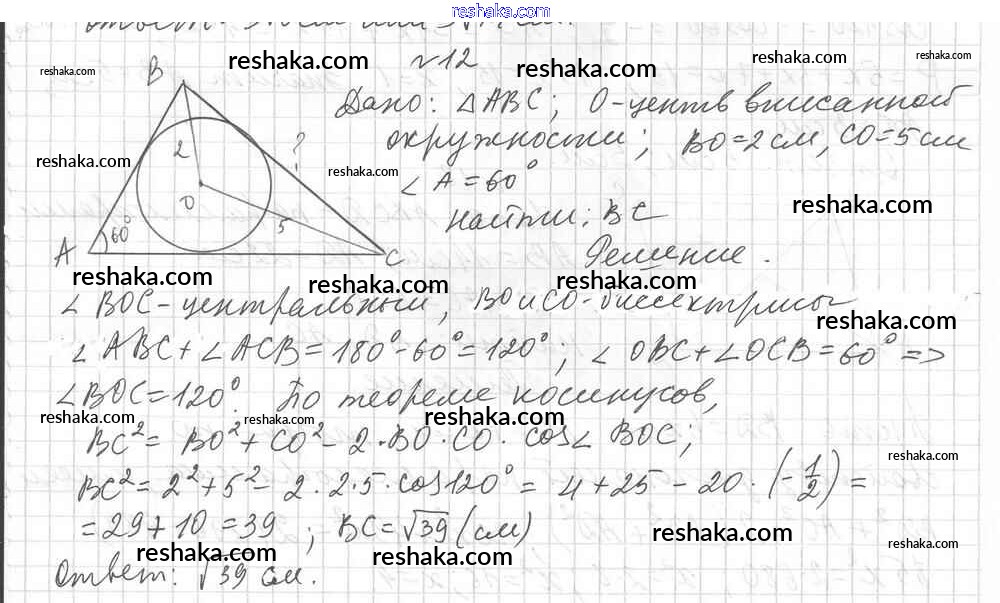 reshaka.com
№12
Дано: △ABC; O-центр вписанной
окружности; BO=2см, CO=5см
∠A=60°
Найти: BC
Решение.
B
2
?
O
60°
5
A
C
∠BOC-центральный, BO и CO-биссектрисы
∠ABC+∠ACB=180°-60°=120°; ∠OBC+∠OCB=60° =>
∠BOC=120°. По теореме косинусов,
BC²= BO²+CO²-2·BO·CO·cos∠BOC;
BC²=2²+5²-2·2·5·cos120°= 4+25-20·(-1/2)=
=29+10=39; BC=√39(см)
Ответ: √39 см.
reshaka.com
reshaka.com
reshaka.com
reshaka.com
reshaka.com
reshaka.com
reshaka.com
reshaka.com
reshaka.com
reshaka.com
reshaka.com
reshaka.com
reshaka.com
reshaka.com
reshaka.com
reshaka.com
reshaka.com
reshaka.com
reshaka.com
reshaka.com